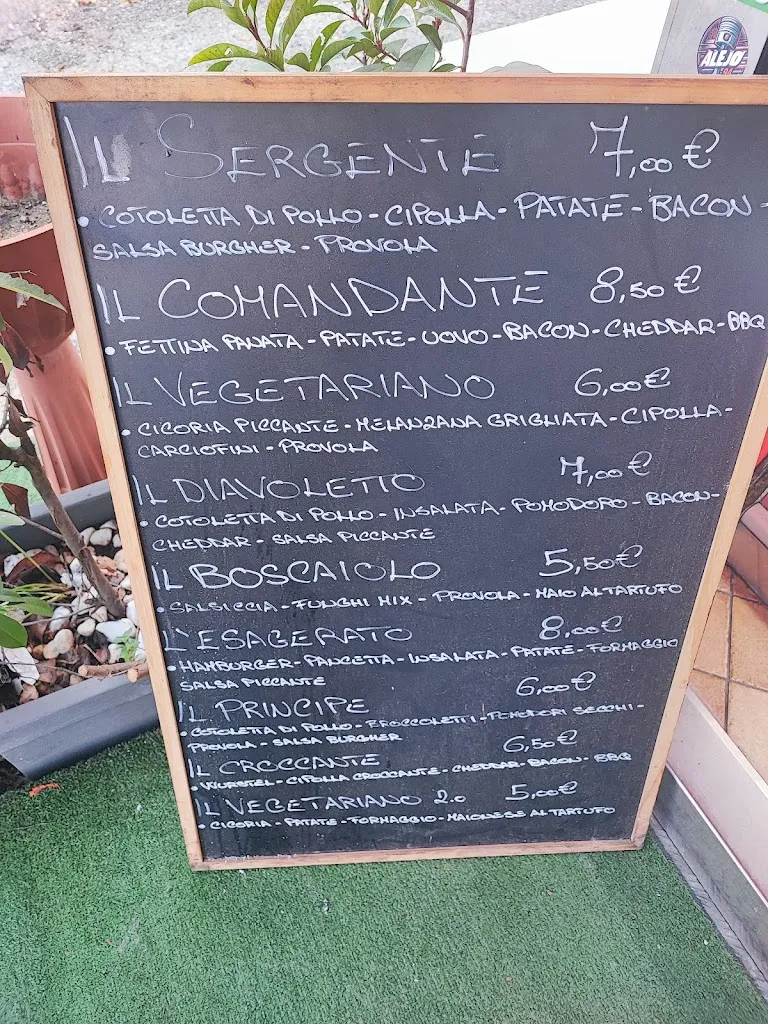 ALEJO
IL SERGENTE 7,00 €
• COTOLETTA DI POLLO - CIPOLLA - PATATE - BACON -
SALSA BURGHER - PROVOLA
IL COMANDANTE 8,50 €
• FETTINA PANATA - PATATE - UOVO - BACON - CHEDDAR - BBQ
IL VEGETARIANO 6,00 €
• CICORIA PICCANTE - MELANZANA GRIGLIATA - CIPOLLA -
CARCIOFINI - PROVOLA
IL DIAVOLETTO 7,00 €
• COTOLETTA DI POLLO - INSALATA - POMODORO - BACON -
CHEDDAR - SALSA PICCANTE
IL BOSCAIOLO 5,50 €
• SALSICCIA - FUNGHI MIX - PROVOLA - MAIO AL TARTUFO
L'ESAGERATO 8,00 €
• HAMBURGER - PANCETTA - INSALATA - PATATE - FORMAGGIO
SALSA PICCANTE
IL PRINCIPE 6,00 €
• COTOLETTA DI POLLO - BROCCOLETTI - POMODORI SECCHI -
PROVOLA - SALSA BURGHER
IL CROCCANTE 6,50 €
• WURSTEL - CIPOLLA CROCCANTE - CHEDDAR - BACON - BBQ
IL VEGETARIANO 2.0 5,00 €
• CICORIA - PATATE - FORMAGGIO - MAIONESE AL TARTUFO